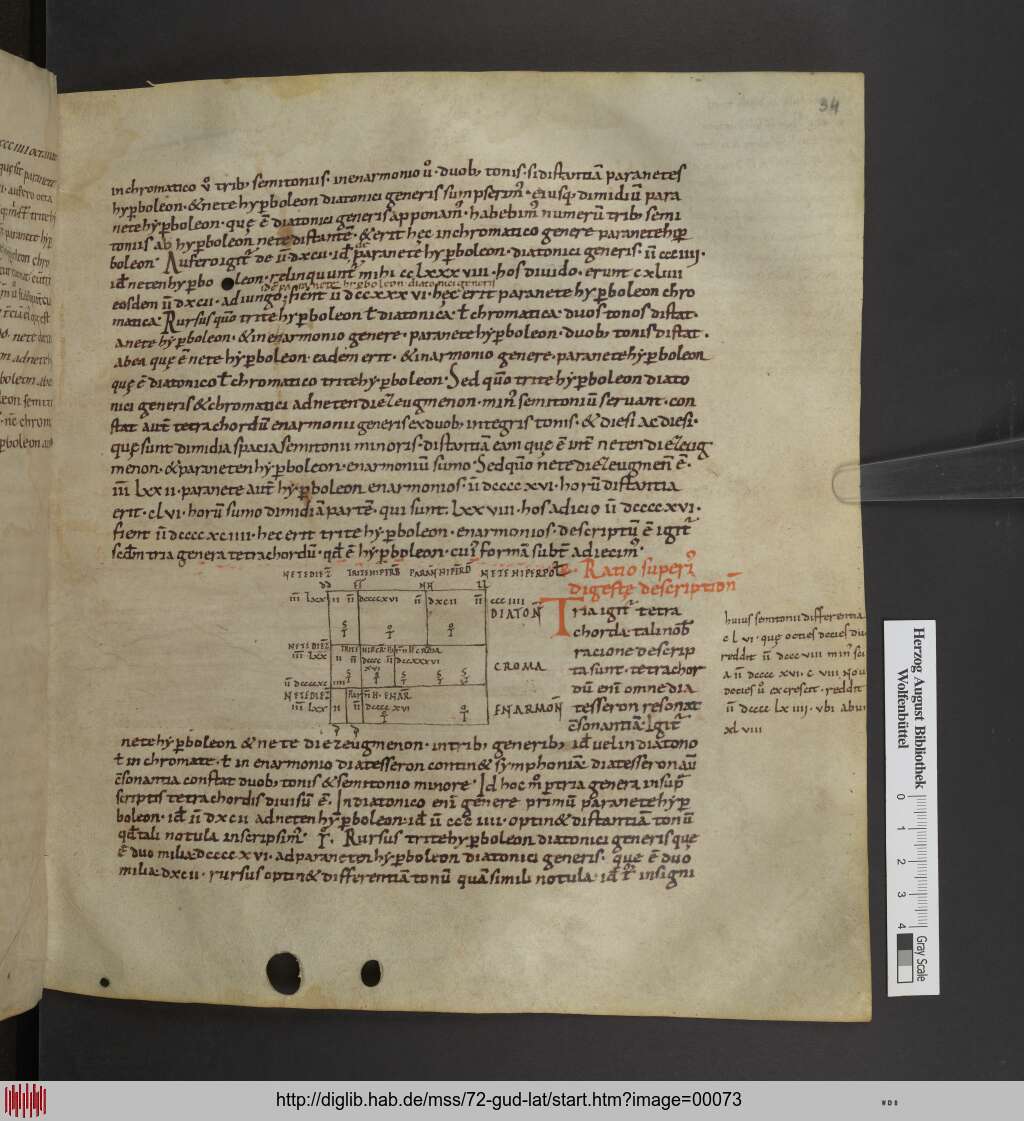 34
in chromatico ů trib; semitoniis. in enarmonio ů. duob; tonis. si distantiā paranetes
hyꝑboleon. & nete hyꝑboleon diatonici generis sumpserim᾽. eiusq; dimidiū para
nete hyꝑboleon. quę ē diatonici generis apponam᾽. habebim᾽ numerū trib; semi
toniis ab hyꝑboleon nete distantē. & erit hęc in chromatico genere paranete hyꝑ
boleon. Aufero igit᾽ de īī dxcii. id ē paranete hyꝑboleon. diatonici generis. īī ccciiii.
id ē neten hyꝑbo leon. relinquunt᾽ mihi cclxxxviii. hos divido. erunt cxliiii
id ē paranete hyꝑboleon diatonici generis
eosdem īī dxcii. adiungo. fient īī dccxxxvi. hęc erit paranete hyꝑboleon chro
matica. Rursus quō trite hyꝑboleon ł diatonica ł chromatica duos tonos distat.
a nete hyꝑboleon. & in enarmonio genere. paranete hyꝑboleon. duob; tonis distat.
ab ea quę ē nete hyꝑboleon. eadem erit. & in armonio genere. paranete hyꝑboleon
quę ē diatonico ł chromatico trite hyꝑboleon. Sed quō trite hyꝑboleon diato
nici generis & chromatici ad neten diezeugmenon. min᾽ semitoniū servant. con
stat aut̄ tetrachordū enarmonii generis ex duob; integris tonis. & diesi ac diesi.
quę sunt dimidia spacia semitonii minoris. distantiā eam quę ē int̄ neten diezeug
menon. & paraneten hyꝑboleon. enarmoniū sumo. Sed quō nete diezeugmen̄ ē.
īīī lxxii. paranete aut̄ hyꝑboleon enarmonios. īī dccccxvi. horū distantia
erit. clvi. horū sumo dimidiā partē. qui sunt. lxxviii. hos adicio īī dccccxvi.
fient īī dccccxciiii. hec erit trite hyꝑboleon. enarmonios. descriptū ē igit᾽
scd̄m tria genera tetrachordū. qđ ē hyꝑboleon. cui᾽ formā subt̄ adiecim᾽.
Ratio superi᾽
digestę description̄
NETE DIEZ̄
NETE HIPERBOL
īīī lxxi
īī dccccxvi
īī dxcii
īī
ccciiii
DIATON̄
CROMA
ENARMON̄
Tria igit᾽ tetra
chorda. tali nob̄
racione descrip
ta sunt. tetrachor
dū eni᾽ omne dia
tesseron resonat
c̄sonantiā. Igit᾽
huius semitonii differentia
clvi. quę octies decies du
reddit īī dcccviii min᾽ sci
a īī dccccxvi. cviii nou
decies ů excrescit. reddit
īī dcccclxiiii. ubi abun
xlviii
nete hyꝑboleon & nete diezeugmenon. in trib; generib; id ē vel in diatono
ł in chromate. ł in enarmonio diatesseron contin& symphoniā. diatesseron aū
c̄sonantia constat duob; tonis & semitonio minore. Id hoc m̊ ꝑ tria genera in supra
scriptis tetrachordis divisū ē. In diatonico eni᾽ genere primū paranete hyꝑ
boleon. id ē īī dxcii ad neten hyꝑboleon. id ē īī ccciiii. optin& distantiā tonū
qđ tali notula inscripsim᾽. T̊. Rursus trite hyꝑboleon diatonici generis que
ē duo milia dccccxvi. ad paraneten hyꝑboleon diatonici generis. quę ē duo
milia dxcii. rursus optin& differentiā tonū quā simili notula. id ē T̊ insigni
Herzog August Bibliothek
Wolfenbüttel
0 1 2 3 4
Gray Scale
http://diglib.hab.de/mss/72-gud-lat/start.htm?image=00073